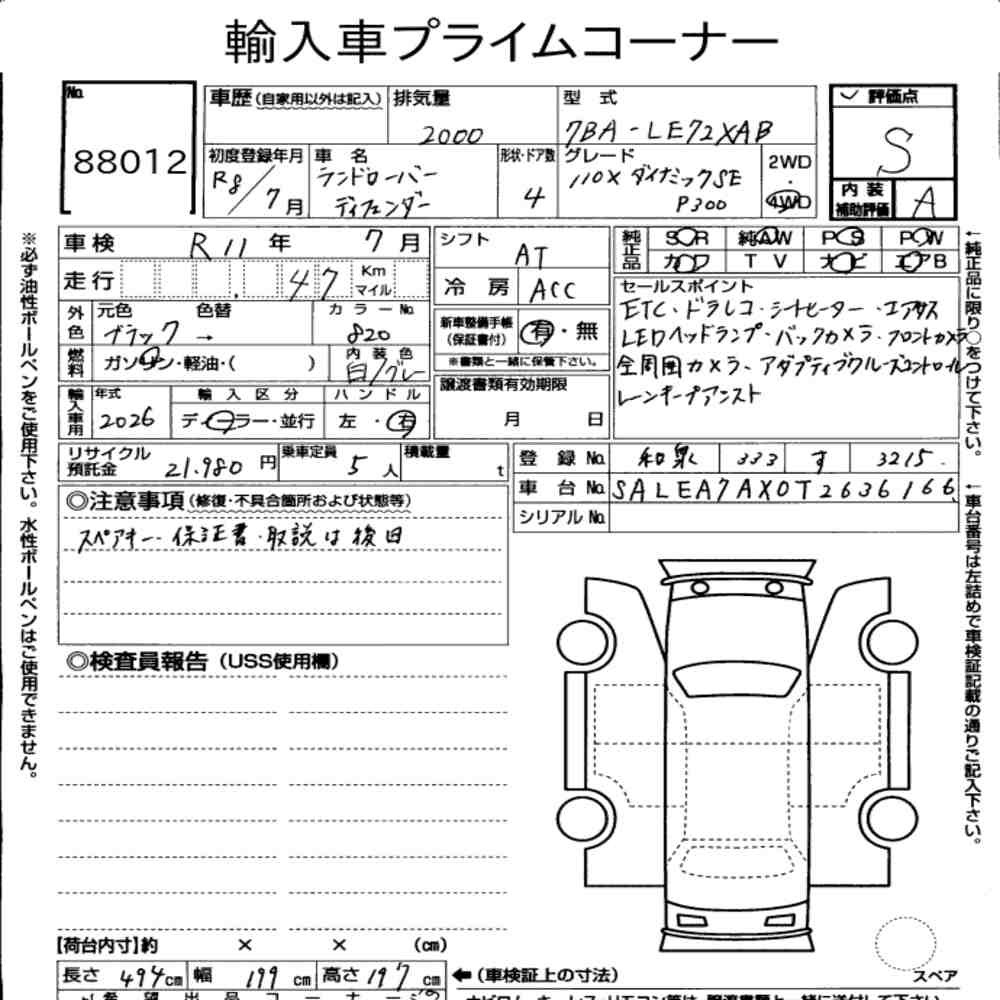 輸入車プライムコーナー
No.
88012
車歴(自家用以外は記入)
排気量
2000
型 式
7BA-LE72XAB
評価点
S
内装
補助評価
A
初度登録年月
R8/7月
車 名
ランドローバー
ディフェンダー
形状・ドア数
4
グレード
110X ダイナミックSE
P300
2WD
・
4WD
車検 R11年 7月
走行 47 Km
マイル
シフト
AT
冷 房 ACC
純正品
SR 純AW PS PW
カワ TV ナビ エアB
外色
元色 色替
ブラック →
カラーNo.
820
燃料
ガソリン・軽油・( )
内装色
白/グレー
新車整備手帳
(保証書付)
有・無
※書類と一緒に保管下さい。
セールスポイント
ETC・ドラレコ・シートヒーター・エアサス
LEDヘッドランプ・バックカメラ・フロントカメラ
全周囲カメラ・アダプティブクルーズコントロール
レーンキープアシスト
輸入車用
年式
2026
輸入区分
ディーラー・並行
ハンドル
左・右
譲渡書類有効期限
月 日
リサイクル
預託金
21.980円
乗車定員
5人
積載量
t
登録No. 和泉 333 す 3215.
車台No. SALEA7AX0T2636166
シリアルNo.
◎注意事項(修復・不具合箇所および状態等)
スペアキー・保証書・取説は後日
◎検査員報告(USS使用欄)
【荷台内寸】約 × × (cm)
長さ 494cm 幅 199cm 高さ 197cm
←(車検証上の寸法)
スペア
※必ず油性ボールペンをご使用下さい。水性ボールペンはご使用できません。
←純正品に限り○をつけて下さい。
←車台番号は左詰めで車検証記載の通りご記入下さい。